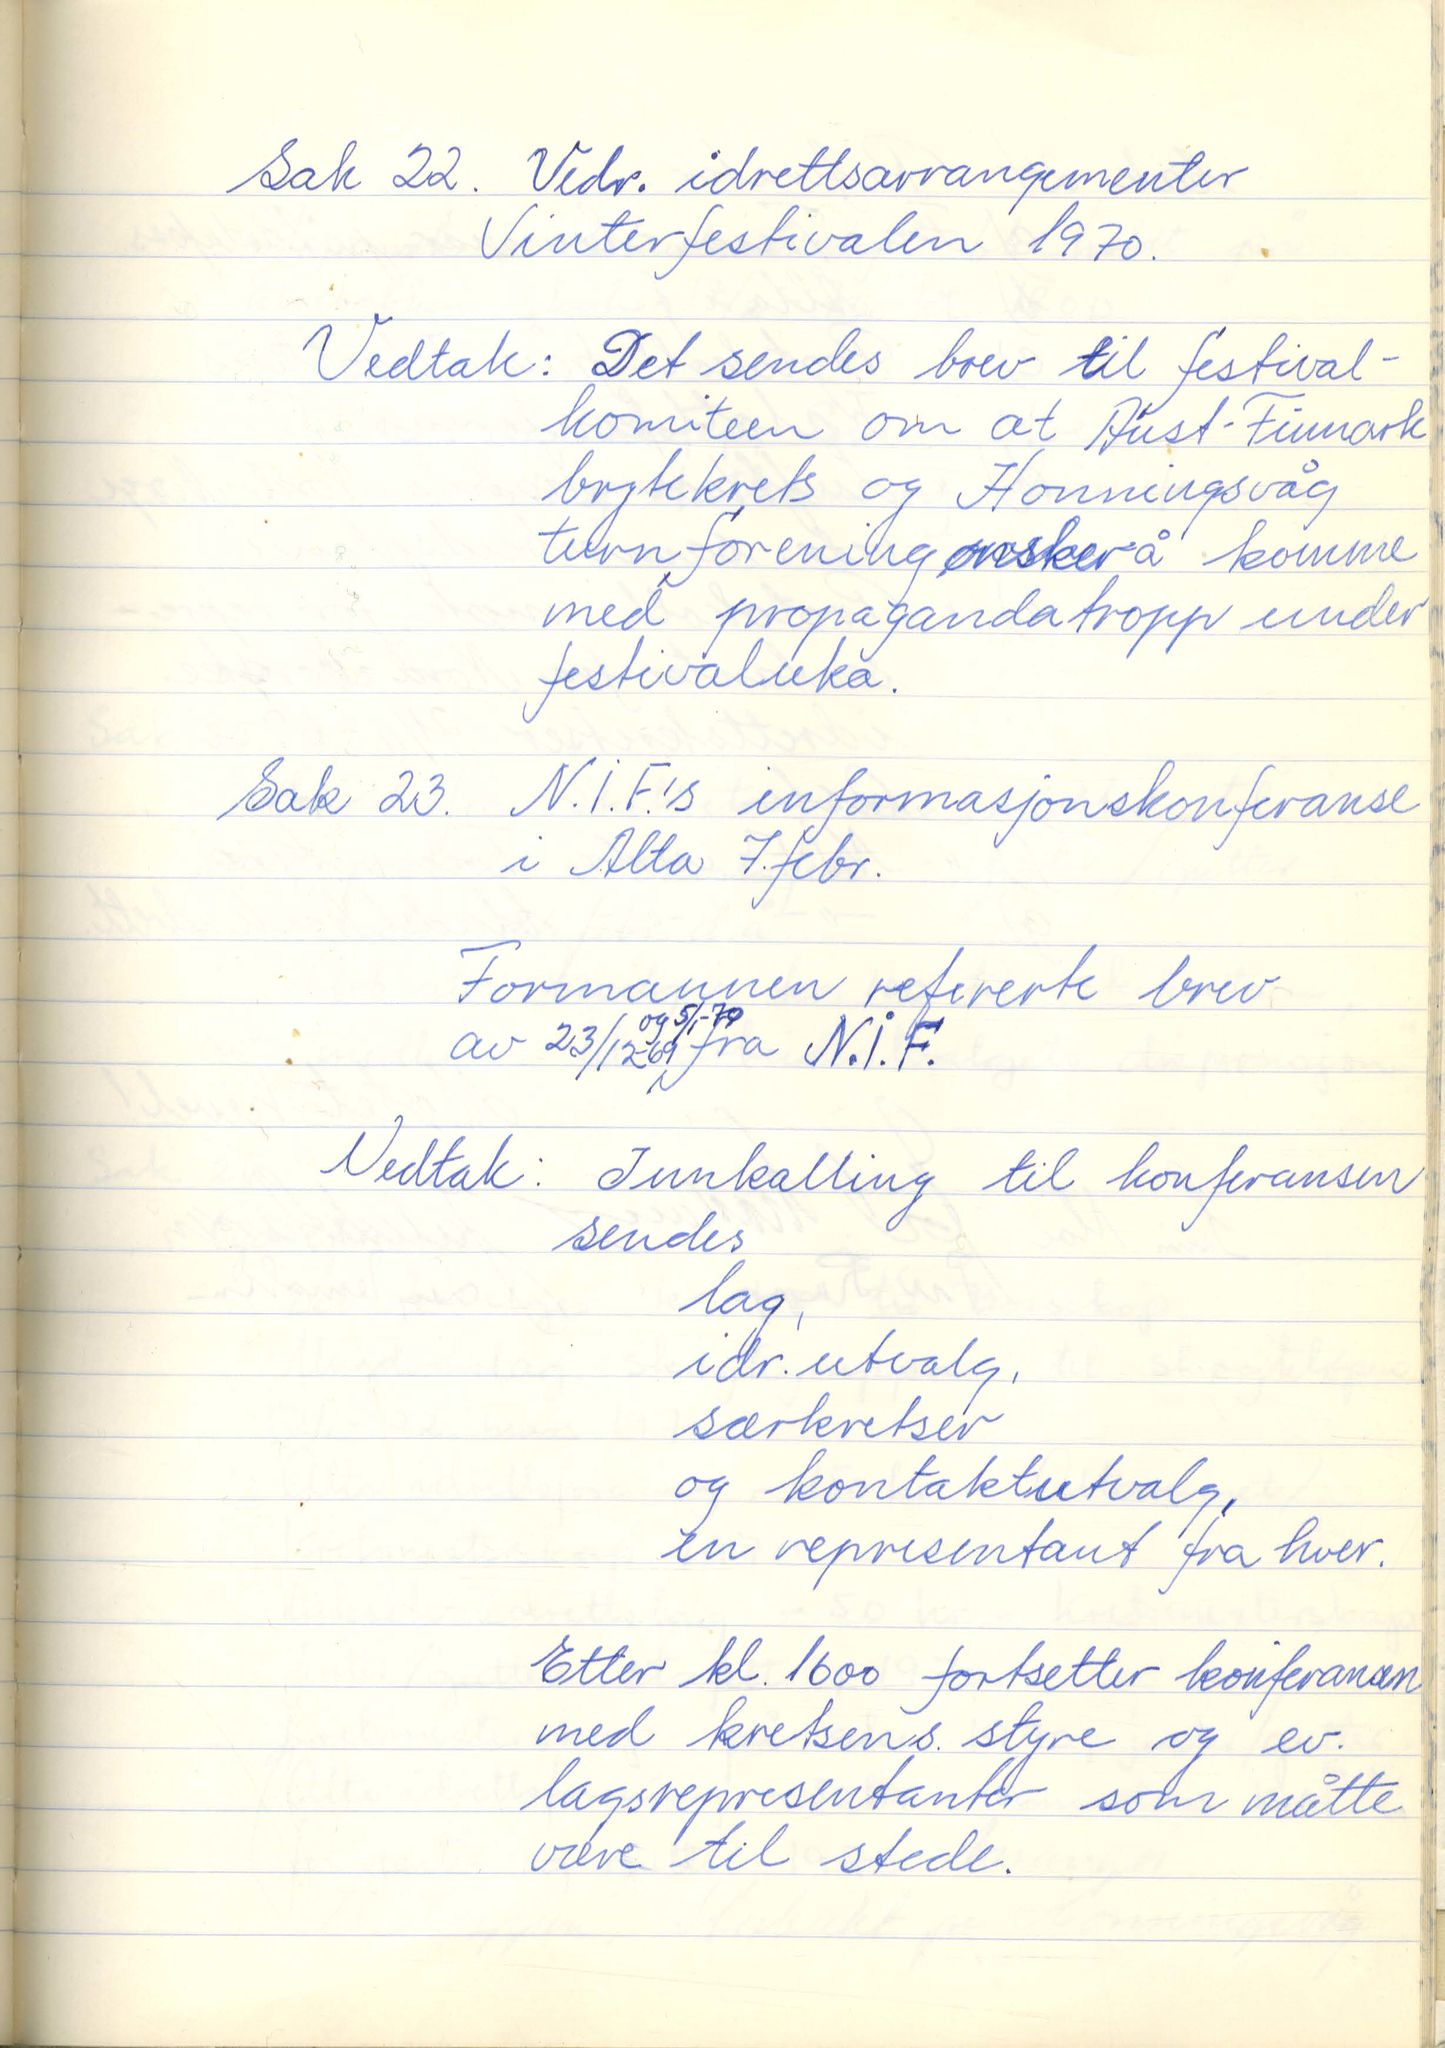 Sak 22. Vedr. idrettsarrangementer
Vinterfestivalen 1970.
Vedtak: Det sendes brev til festival-
komiteen om at Aust-Finmark
brytekrets og Honningsvåg
turnforening ønsker å komme
med propagandatropp under
festivaluka.
Sak 23. N.I.F.'s informasjonskonferanse
i Alta 7. febr.
Formannen refererte brev
og 5/1-70
av 23/12-69 fra N.I.F.
Vedtak: Innkalling til konferansen
sendes
lag,
idr. utvalg,
særkretser
og kontaktutvalg,
en representant fra hver.
Etter kl. 1600 fortsetter konferansen
med kretsens styre og ev.
lagsrepresentanter som måtte
være til stede.